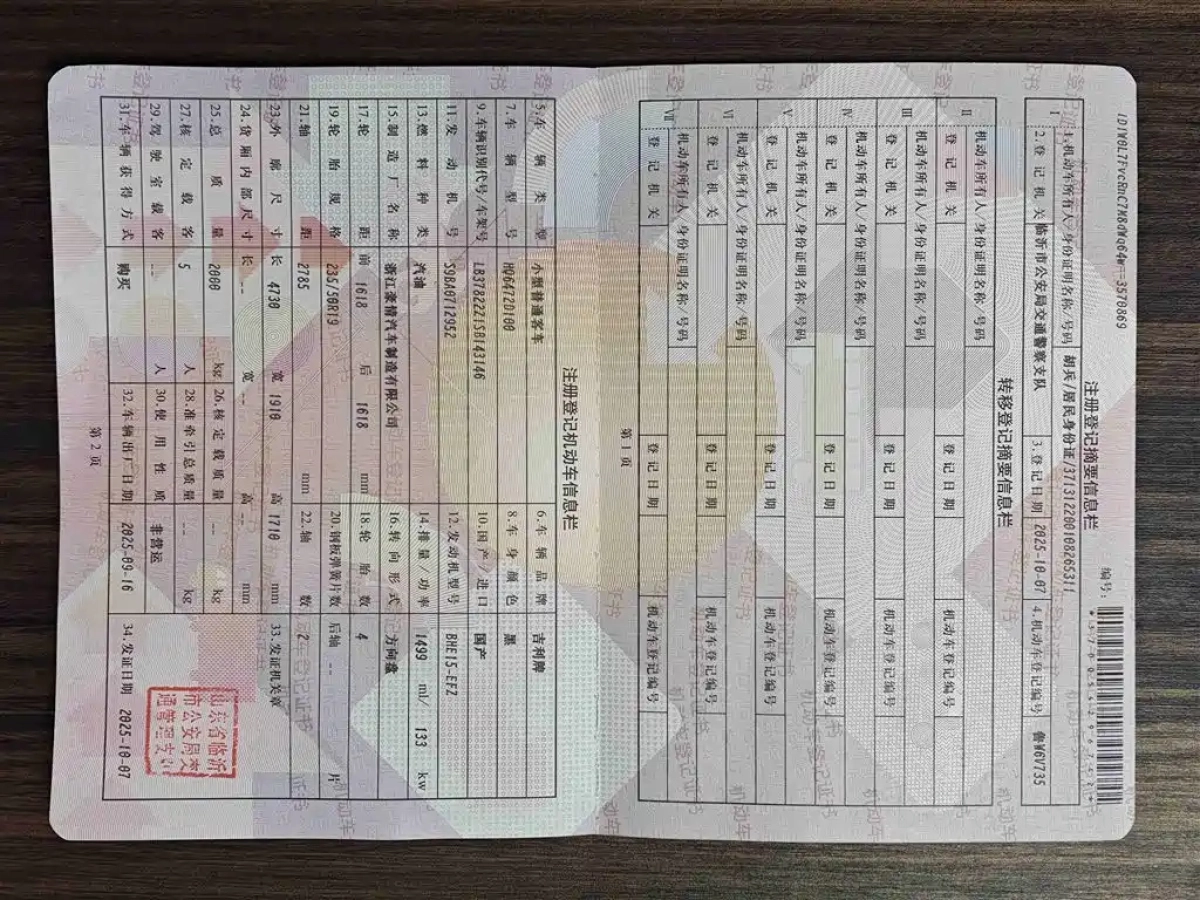 1D1W0L7FvcRnC7K8dWq64W=3570869
编号：
注册登记摘要信息栏
I 1.机动车所有人/身份证明名称/号码 胡兵/居民身份证/371312200108265311
2.登记机关 临沂市公安局交通警察支队 3.登记日期 2025-10-07 4.机动车登记编号 鲁W6V735
转移登记摘要信息栏
II 机动车所有人/身份证明名称/号码
登记机关 登记日期 机动车登记编号
III 机动车所有人/身份证明名称/号码
登记机关 登记日期 机动车登记编号
IV 机动车所有人/身份证明名称/号码
登记机关 登记日期 机动车登记编号
V 机动车所有人/身份证明名称/号码
登记机关 登记日期 机动车登记编号
VI 机动车所有人/身份证明名称/号码
登记机关 登记日期 机动车登记编号
VII 机动车所有人/身份证明名称/号码
登记机关 登记日期 机动车登记编号
第1页
注册登记机动车信息栏
5.车辆类型 小型普通客车 6.车辆品牌 吉利牌
7.车辆型号 HQ6472D100 8.车身颜色 黑
9.车辆识别代号/车架号 LB3782221SB143146 10.国产/进口 国产
11.发动机号 S9BA0712952 12.发动机型号 BHE15-EFZ
13.燃料种类 汽油 14.排量/功率 1499 ml/ 133 kw
15.制造厂名称 浙江豪情汽车制造有限公司 16.转向形式 方向盘
17.轮距 前 1618 后 1618 mm 18.轮胎数 4
19.轮胎规格 235/50R19 20.钢板弹簧片数 后轴 -- 片
21.轴距 2785 mm 22.轴数 2
23.外廓尺寸 长 4730 宽 1910 高 1710 mm 33.发证机关章
24.货厢内部尺寸 长 -- 宽 -- 高 -- mm
25.总质量 2000 kg 26.核定载质量 -- kg
27.核定载客 5 人 28.准牵引总质量 -- kg
29.驾驶室载客 -- 人 30.使用性质 非营运
31.车辆获得方式 购买 32.车辆出厂日期 2025-09-16 34.发证日期 2025-10-07
山东省临沂
市公安局交
通管理支
第2页